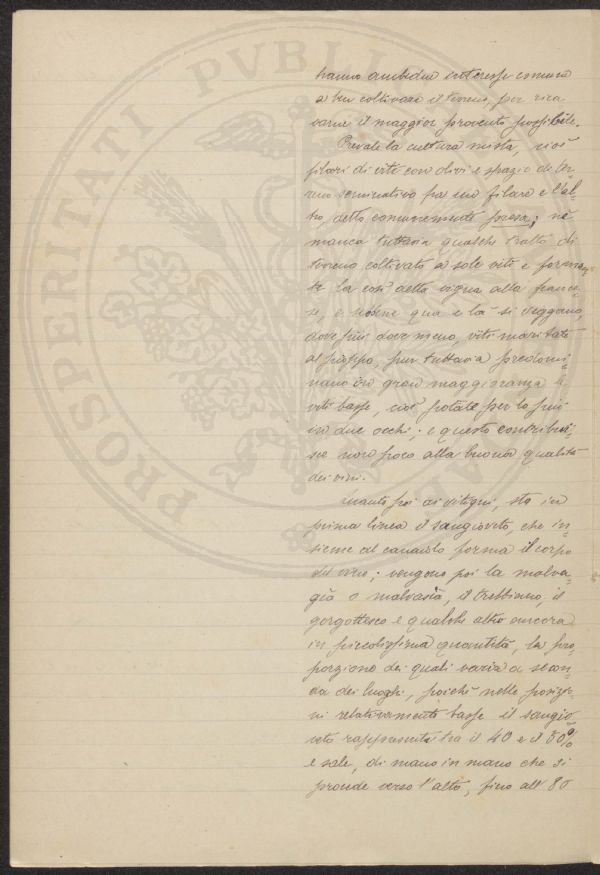 PROSPERITATI PVBLI
hanno ambidue interesse comune
a ben coltivare il terreno, per rica=
varne il maggior provento possibile.
Prevale la cultura mista, cioè
filari di viti con olivi e spazio di ter=
reno seminativo fra un filare e l'al=
tro, detto comunemente presa; nè
manca tuttavia qualche tratto di
terreno coltivato a sole viti e forman=
te la così detta vigna alla france=
se, e sebbene qua e là si veggano,
dove più dove meno, viti maritate
al pioppo, pur tuttavia predomi=
nano in gran maggioranza le
viti basse, cioè potate per lo più
in due occhi; e questo contribui=
sce non poco alla buona qualità
dei vini.
Quanto poi ai vitigni, sta in
prima linea il sangioveto, che in=
sieme al canaiolo forma il corpo
del vino; vengono poi la malva=
gia o malvasia, il trebbiano, il
gorgottesco e qualche altro ancora
in piccolissima quantità, la pro=
porzione dei quali varia a secon=
da dei luoghi, poichè nelle posizio=
ni relativamente basse il sangio=
veto rappresenta tra il 40 e il 50%
e sale, di mano in mano che si
procede verso l'alto, fino all' 80